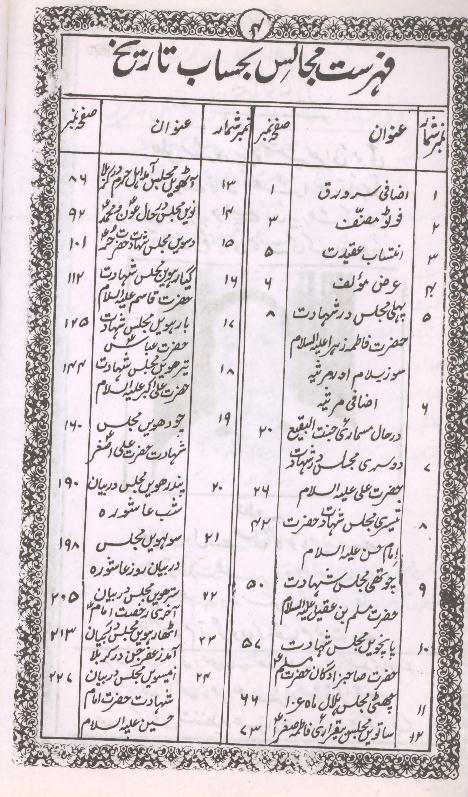 ۴
فہرست مجالس بحساب تاریخ
نمبر شمار عنوان صفحہ نمبر
۱ اضافی سرورق ۱
۲ فوٹو مصنّف ۳
۳ انتساب عقیدت ۵
۴ عرض مؤلف ۶
۵ پہلی مجلس در شہادت ۸
حضرت فاطمہ زہرا علیہا السلام
سوز سلام اور مرثیہ
۶ اضافی مرثیہ
در حال مسماریٔ جنت البقیع ۲۰
۷ دوسری مجلس در شہادت
حضرت علی علیہ السلام ۲۶
۸ تیسری مجلس شہادت حضرت ۴۲
امام حسن علیہ السلام
۹ چوتھی مجلس شہادت ۵۰
حضرت مسلم بن عقیل علیہ السلام
۱۰ پانچویں مجلس شہادت ۵۷
حضرت صاحبزادگان حضرت مسلمؑ
۱۱ چھٹی مجلس ہلال ماہ ۶۶
۱۲ ساتویں مجلس بیقراریٔ فاطمہ صغریٰؑ ۷۳
نمبر شمار عنوان صفحہ نمبر
۱۳ آٹھویں مجلس آمد اہل حرم در کربلا ۸۶
۱۴ نویں مجلس در حال عونؑ و محمدؑ ۹۲
۱۵ دسویں مجلس شہادت حضرت حرؑ ۱۰۱
۱۶ گیارہویں مجلس شہادت ۱۱۲
حضرت قاسم علیہ السلام
۱۷ بارہویں مجلس شہادت ۱۲۵
حضرت عباسؑ
۱۸ تیرھویں مجلس شہادت ۱۴۴
حضرت علی اکبر علیہ السلام
۱۹ چودھویں مجلس ۱۶۰
شہادت حضرت علی اصغرؑ
۲۰ پندرھویں مجلس در بیان ۱۹۰
شب عاشورہ
۲۱ سولہویں مجلس ۱۹۸
در بیان روز عاشورہ
۲۲ سترھویں مجلس در بیان ۲۰۵
آخری رخصت امامؑ
۲۳ اٹھارہویں مجلس در بیان ۲۱۳
آمد زعفر جن در کربلا
۲۴ انیسویں مجلس در بیان ۲۲۷
شہادت حضرت امام
حسین علیہ السلام